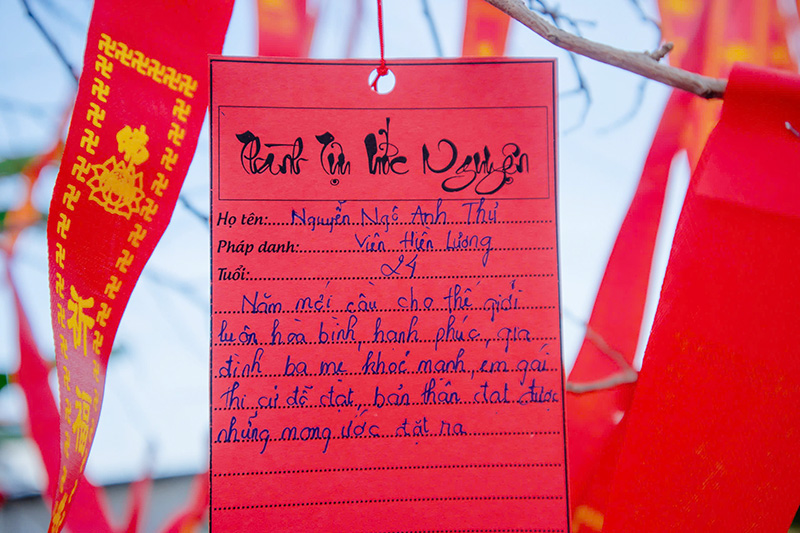 Thành Tựu Ước Nguyện
Họ tên: Nguyễn Ngô Anh Thư
Pháp danh: Viên Hiền Lương
Tuổi: 24
Năm mới cầu cho thế giới
luôn hoà bình, hạnh phúc, gia
đình ba mẹ khoẻ mạnh, em gái
thi cử đỗ đạt, bản thân đạt được
những mong ước đặt ra